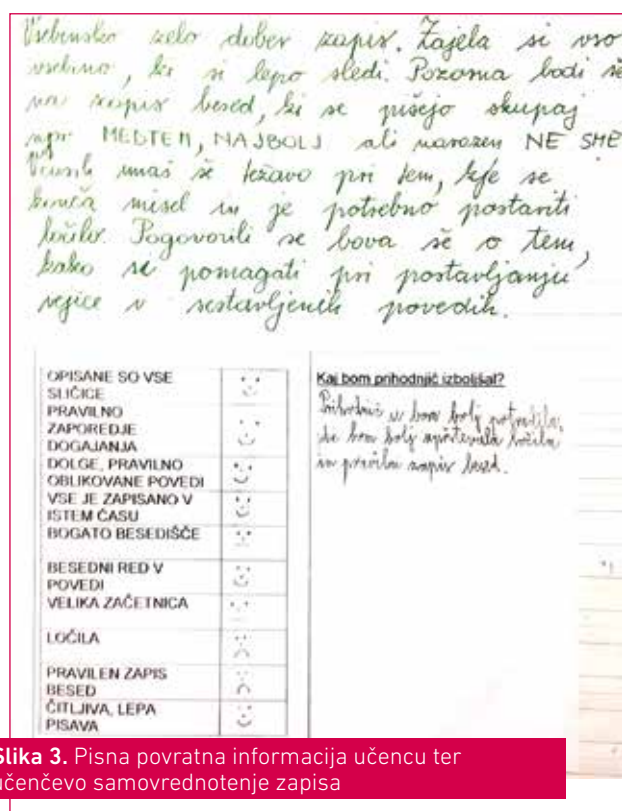 Vsebinsko zelo dober zapis. Zajela si vso
vsebino, ki si lepo sledi. Pozorna bodi še
na zapis besed, ki se pišejo skupaj
npr MEDTEM, NAJBOLJ ali narazen NE SME
Včasih imaš še težavo pri tem, kje se
konča misel in je potrebno postaviti
ločilo. Pogovorili se bova še o tem,
kako si pomagati pri postavljanju
vejice v sestavljenih povedih.
OPISANE SO VSE
SLIČICE
PRAVILNO
ZAPOREDJE
DOGAJANJA
DOLGE, PRAVILNO
OBLIKOVANE POVEDI
VSE JE ZAPISANO V
ISTEM ČASU
BOGATO BESEDIŠČE
BESEDNI RED V
POVEDI
VELIKA ZAČETNICA
LOČILA
PRAVILEN ZAPIS
BESED
ČITLJIVA, LEPA
PISAVA
Kaj bom prihodnjič izboljšal?
Prihodnjič se bom bolj potrudila,
da bom bolj upoštevala ločila
in pravilen zapis besed.
Slika 3. Pisna povratna informacija učencu ter
učenčevo samovrednotenje zapisa